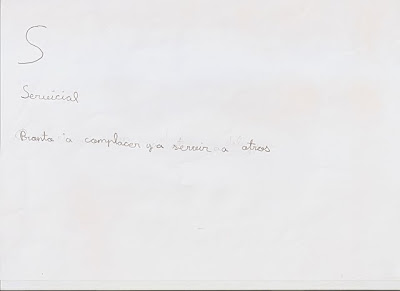 S
Servicial
Pronta a complacer y a servir a otros